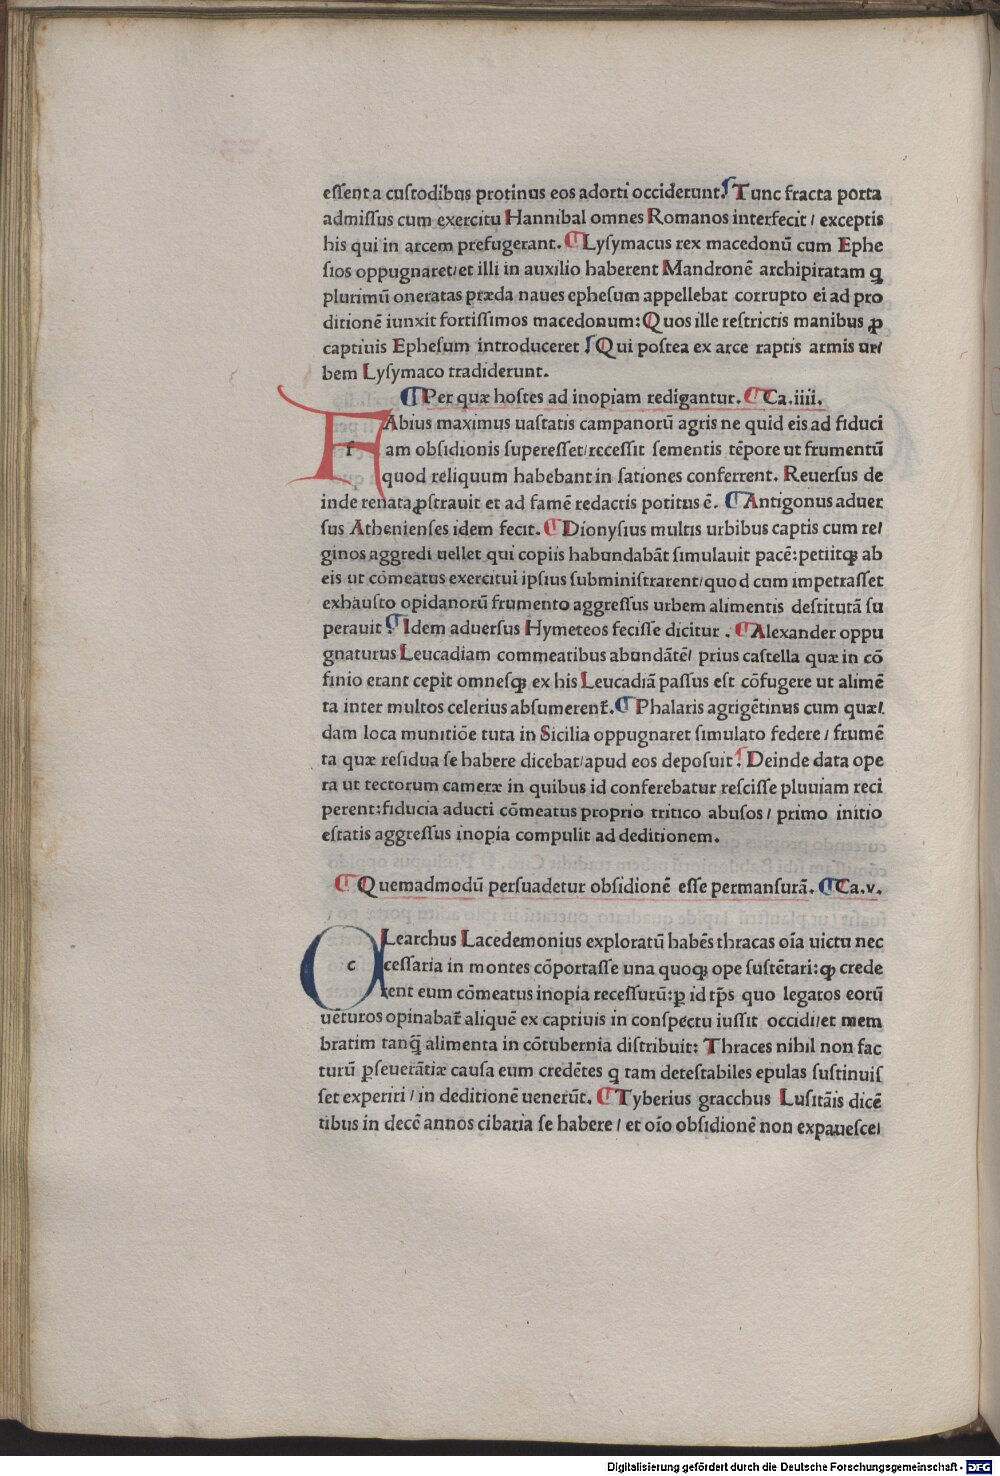 essent a custodibus protinus eos adorti occiderunt. ¶ Tunc fracta porta
admissus cum exercitu Hannibal omnes Romanos interfecit / exceptis
his qui in arcem prefugerant. ¶ Lysymacus rex macedonū cum Ephe
sios oppugnaret/et illi in auxilio haberent Mandronē archipiratam q̄
plurimū oneratas præda naues ephesum appellebat corrupto ei ad pro
ditionē iunxit fortissimos macedonum: Quos ille restrictis manibus ꝓ
captiuis Ephesum introduceret ¶ Qui postea ex arce raptis armis ur/
bem Lysymaco tradiderunt.
¶ Per quæ hostes ad inopiam redigantur. ¶ Ca.iiii.
FAbius maximus uastatis campanorū agris ne quid eis ad fiduci
am obsidionis superesset/recessit sementis tēpore ut frumentū
quod reliquum habebant in sationes conferrent. Reuersus de
inde renata ꝓstrauit et ad famē redactis potitus ē. ¶ Antigonus aduer
sus Athenienses idem fecit. ¶ Dionysius multis urbibus captis cum re/
ginos aggredi uellet qui copiis habundabāt simulauit pacē: petiitqꝫ ab
eis ut cōmeatus exercitui ipsius subministrarent/quod cum impetrasset
exhausto opidanorū frumento aggressus urbem alimentis destitutā su
perauit ¶ Idem aduersus Hymeteos fecisse dicitur . ¶ Alexander oppu
gnaturus Leucadiam commeatibus abundātē/ prius castella quæ in cō
finio erant cepit omnesqꝫ ex his Leucadiā passus est cōfugere ut alimē
ta inter multos celerius absumerent᷑. ¶ Phalaris agrigētinus cum quæ/
dam loca munitiōe tuta in Sicilia oppugnaret simulato federe / frumē
ta quæ residua se habere dicebat/apud eos deposuit ¶ Deinde data ope
ra ut tectorum cameræ in quibus id conferebatur rescisse pluuiam reci
perent: fiducia aducti cōmeatus proprio tritico abusos / primo initio
estatis aggressus inopia compulit ad deditionem.
¶ Quemadmodū persuadetur obsidionē esse permansurā. ¶ Ca.v.
CLearchus Lacedemonius exploratū habēs thracas oīa uictu nec
cessaria in montes cōportasse una quoqꝫ ope sustētari: qꝫ crede
rent eum cōmeatus inopia recessurū: ꝑ id tp̄s quo legatos eorū
uēturos opinabat᷑ aliquē ex captiuis in conspectu iussit occidi/et mem
bratim tanq̄ alimenta in cōtubernia distribuit: Thraces nihil non fac
turū ꝑseuerātiæ causa eum credētes q tam detestabiles epulas sustinuis
set experiri / in deditionē uenerūt. ¶ Tyberius gracchus Lusitāis dicē
tibus in decē annos cibaria se habere / et oīo obsidionē non expauesce/
Digitalisierung gefördert durch die Deutsche Forschungsgemeinschaft - DFG